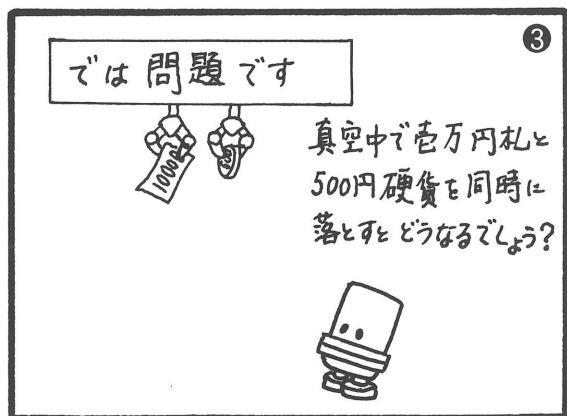 3
では問題です
10000
真空中で壱万円札と
500円硬貨を同時に
落とすとどうなるでしょう?